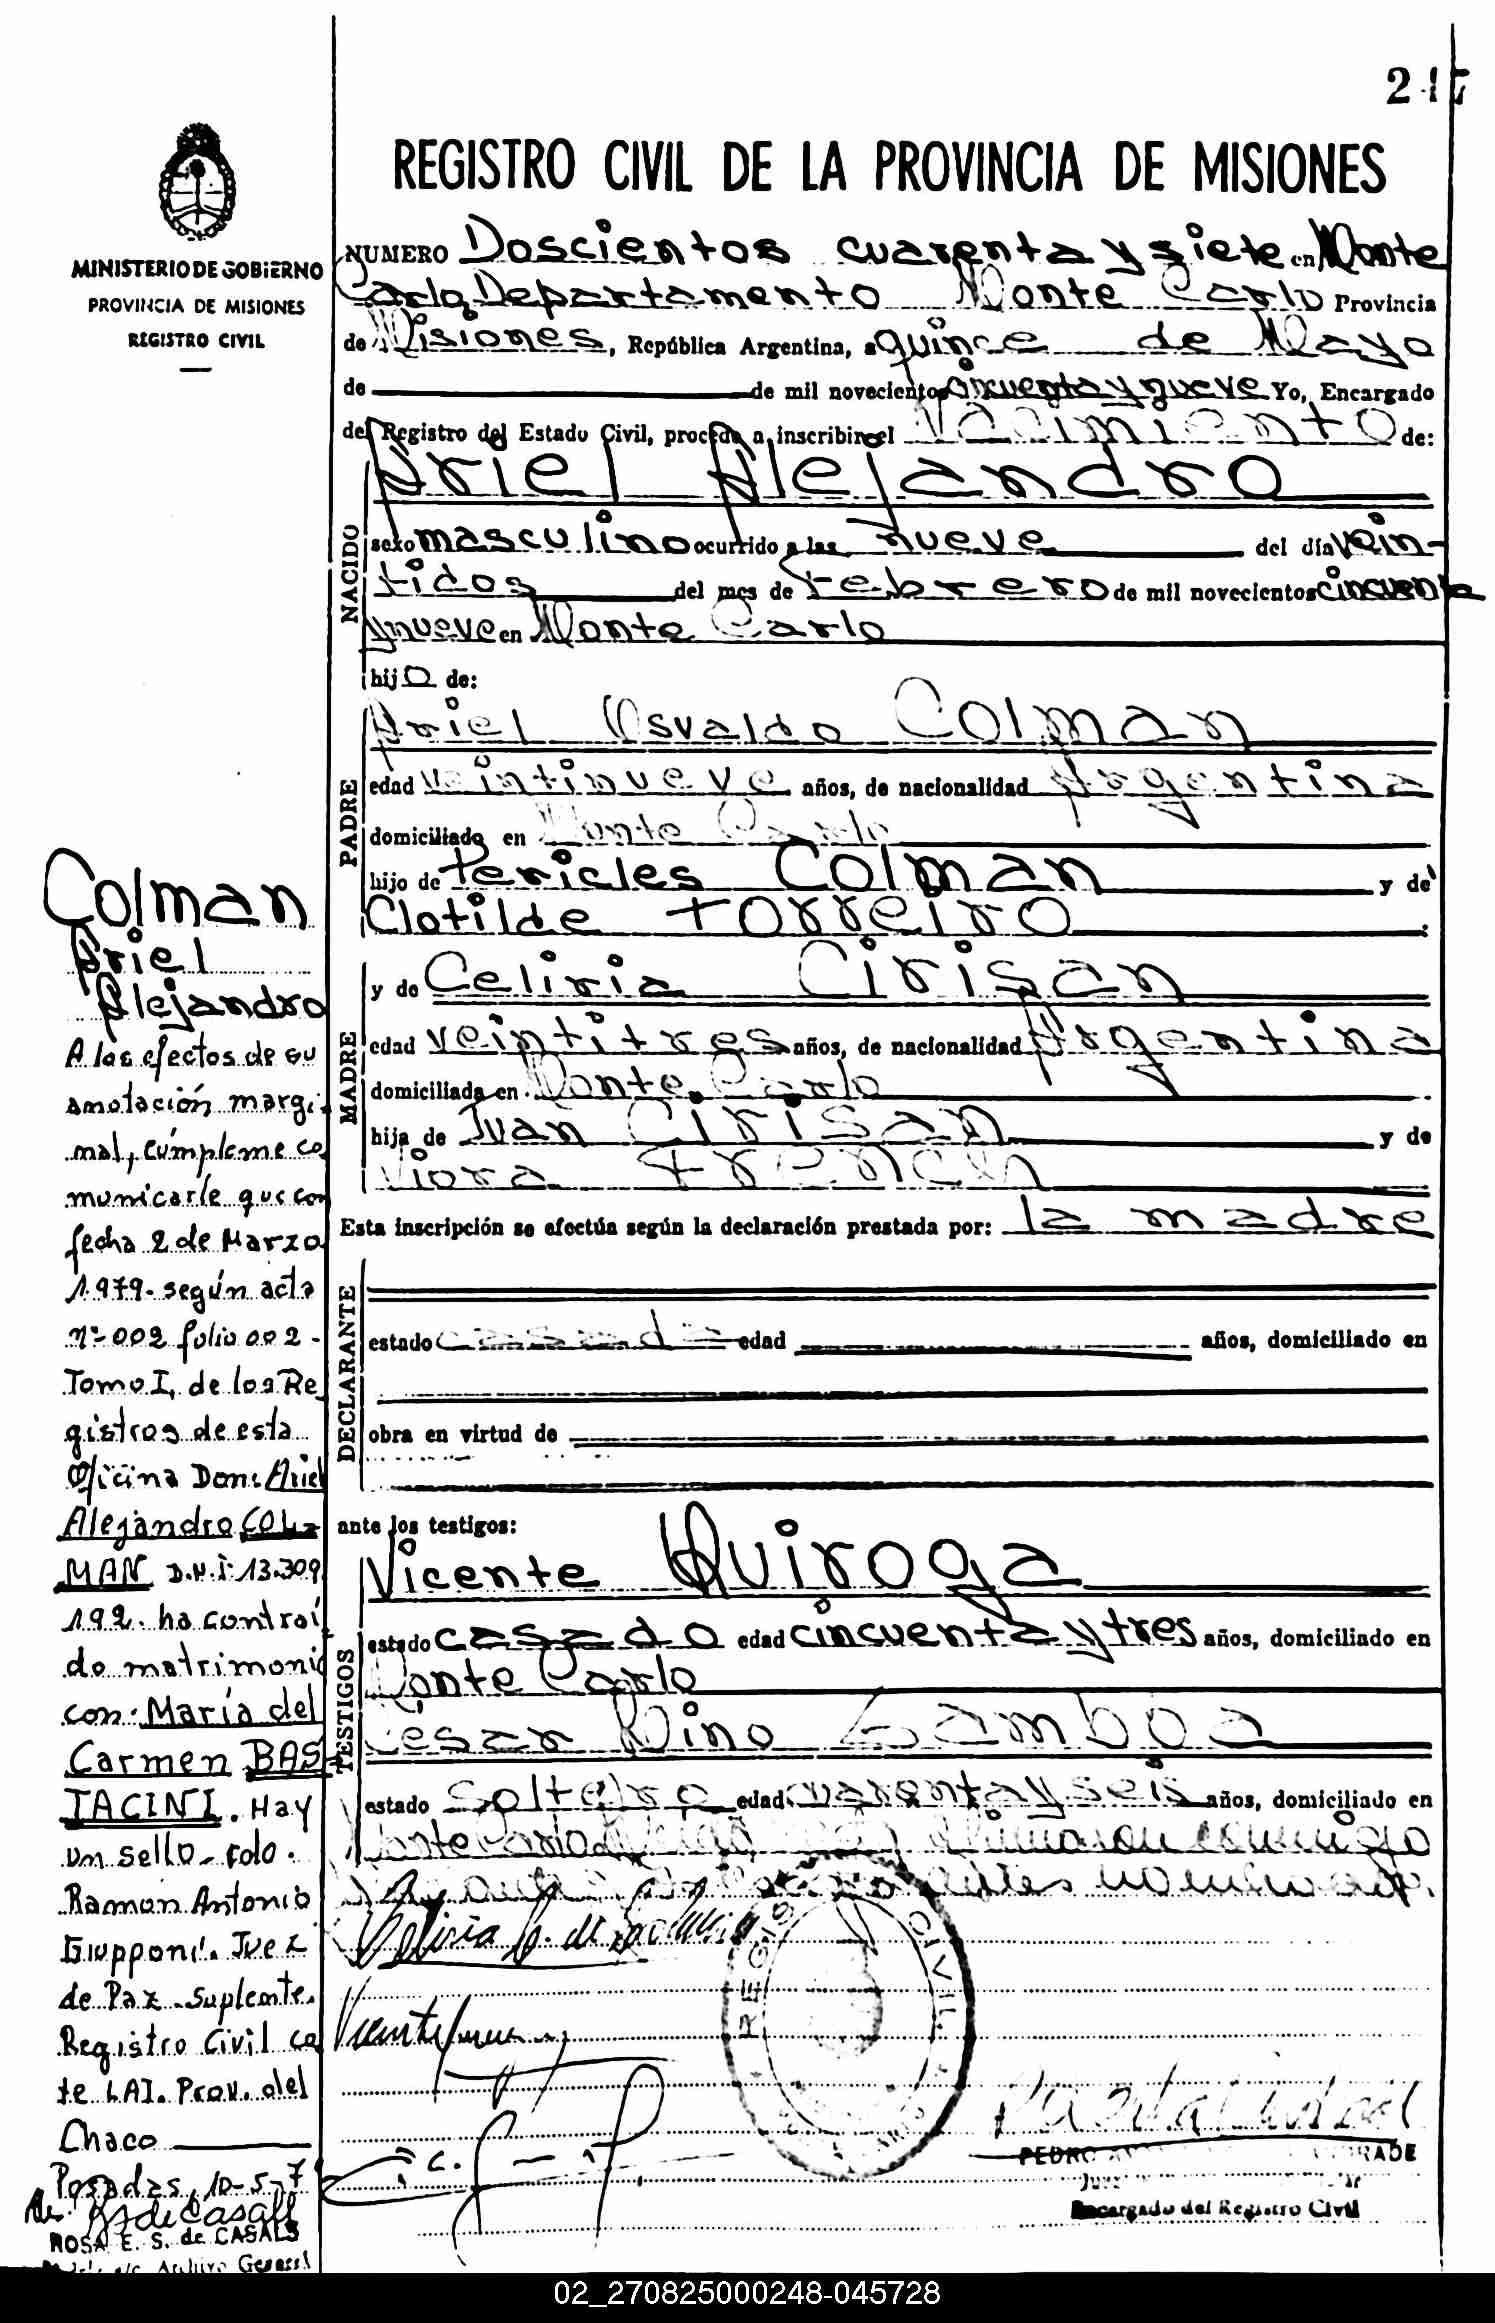 247
MINISTERIO DE GOBIERNO
PROVINCIA DE MISIONES
REGISTRO CIVIL
REGISTRO CIVIL DE LA PROVINCIA DE MISIONES
NUMERO Doscientos cuarenta y siete en Monte
Carlo, Departamento Monte Carlo Provincia
de Misiones, República Argentina, a quince de Mayo
de de mil novecientos cincuenta y nueve Yo, Encargado
del Registro del Estado Civil, procedo a inscribir el Nacimiento de:
NACIDO
Ariel Alejandro
sexo masculino ocurrido a las nueve del día vein-
tidos del mes de Febrero de mil novecientos cincuenta
y nueve en Monte Carlo
hijo de:
PADRE
Ariel Osvaldo Colman
edad veintinueve años, de nacionalidad Argentina
domiciliado en Monte Carlo
hijo de Pericles Colman y de
Clotilde Torreiro
MADRE
y de Celiria Cirisan
edad veintitres años, de nacionalidad Argentina
domiciliada en Monte Carlo
hija de Ivan Cirisan y de
Viora French
Esta inscripción se efectúa según la declaración prestada por: la madre
DECLARANTE
estado casada edad años, domiciliado en
obra en virtud de
ante los testigos:
TESTIGOS
Vicente Quiroga
estado casado edad cincuenta y tres años, domiciliado en
Monte Carlo
Cesar Dino Gamboa
estado soltero edad cuarenta y seis años, domiciliado en
Monte Carlo firmaron conmigo
REGISTRO CIVIL
PEDRO
Encargado del Registro Civil
Colman
Ariel
Alejandro
A los efectos de su
anotación margi-
nal, cúmpleme co
municarle que con
fecha 2 de Marzo
1.979. según acta
Nº 002 folio 002 -
Tomo I, de los Re
gistros de esta
Oficina Don: Ariel
Alejandro COL-
MAN D.N.I: 13.309
192. ha contraí
do matrimonio
con: María del
Carmen BAS
TACINI. Hay
un sello - fdo.
Ramon Antonio
Giupponi. Juez
de Paz - Suplente.
Registro Civil ca
te LAI. Prov. del
Chaco
Posadas, 10-5-7
ROSA E. S. de CASALS
Archivo General
02_270825000248-045728